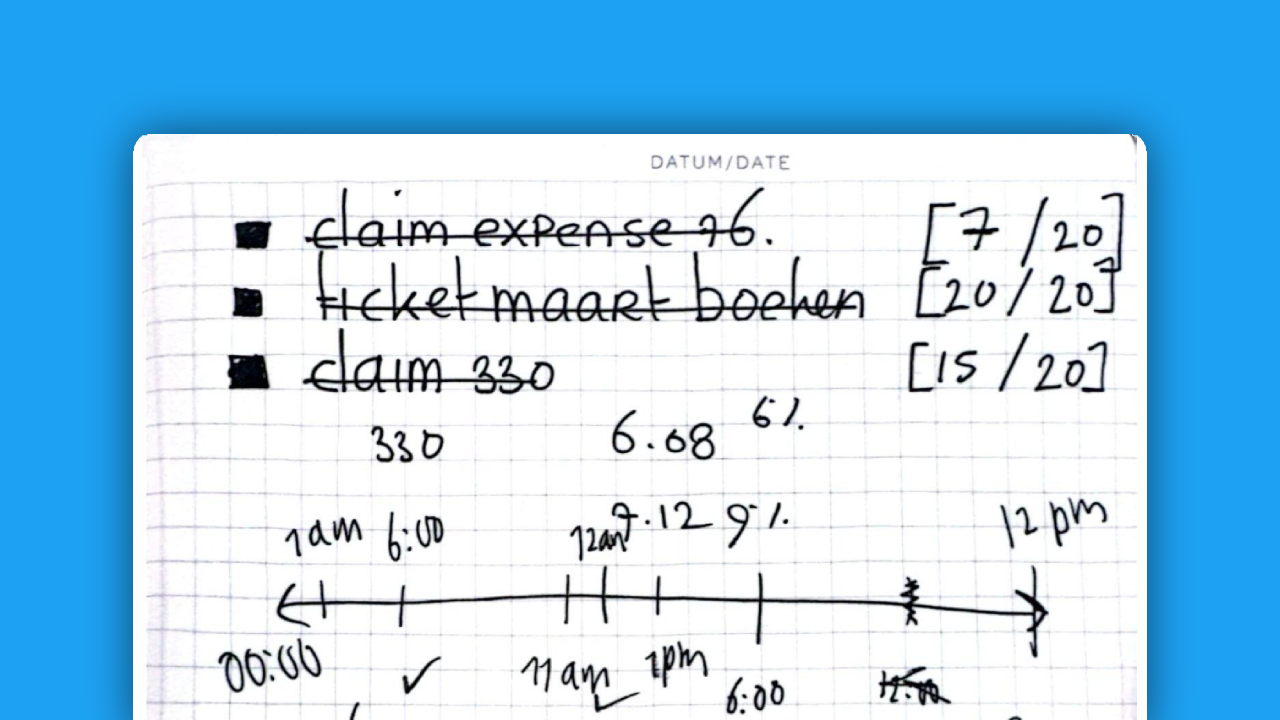 DATUM/DATE
claim expense 76. [7/20]
ticket maart boeken [20/20]
claim 330 [15/20]
330 6.08 6%
7.12 9%
1am 6:00 12am 12 pm
00:00 11am 1pm 6:00